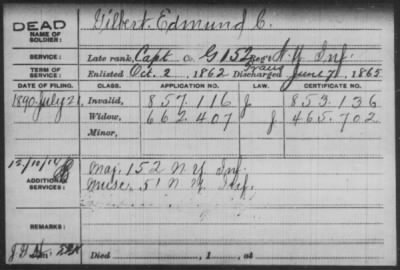 DEAD
NAME OF SOLDIER: Gilbert, Edmund C.
SERVICE: Late rank, Capt Co. G 152 Reg't N.Y. Inf.
TERM OF SERVICE: Enlisted Oct. 2, 1862 Discharged June 7, 1865
DATE OF FILING. CLASS. APPLICATION NO. LAW. CERTIFICATE NO.
1890 July 21 Invalid, 857.116 J 853.136
Widow, 662.407 J 465.702
Minor,
ADDITIONAL SERVICES: Maj. 152 N.Y. Inf.
51 N.Y. Inf.
REMARKS:
Died , 1 , at